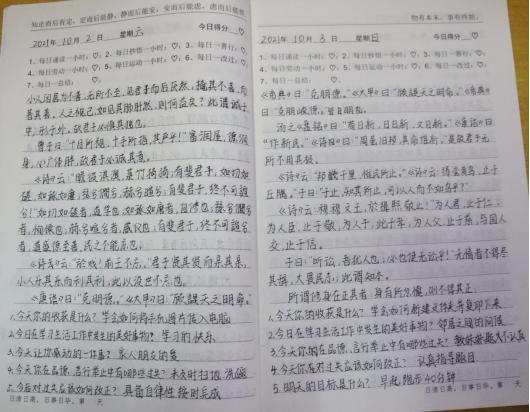 知止而后有定，定而后能静，静而后能安，安而后能虑，虑而后能得
2021年10月2日 星期六 今日得分 ♡
1、每日诵读一小时：♡，2、每日抄悟一小时：♡，3、每日一善行：♡，
4、每日劳动一小时：♡，5、每日运动一小时：♡，6、每日一改过：♡，
7、每日一总结： ♡
小人闲居为不善，无所不至，见君子而后厌然，掩其不善，而
著其善，人之视己，如见其肺肝然，则何益矣？此谓诚于
中，形于外，故君子必慎其独也。
曾子曰："十目所视，十手所指，其严乎！"富润屋，德润
身，心广体胖，故君子必诚其意。
《诗》云："瞻彼淇澳，菉竹猗猗，有斐君子，如切如
磋，如琢如磨，瑟兮僩兮，赫兮喧兮；有斐君子，终不可諠
兮！"如切如磋者，道学也；如琢如磨者，自修也；瑟兮僩兮
者，恂慄也；赫兮喧兮者，威仪也；有斐君子，终不可諠兮
者，道盛德至善，民之不能忘也。
《诗》云："於戏！前王不忘。"君子贤其贤而亲其亲，
小人乐其乐而利其利，此以没世不忘也。
《康诰》曰："克明德。"《大甲》曰："顾諟天之明命。"
1、今天你的收获是什么？学会如何将手机图片传入电脑
2、今日在学习生活工作中发生的美好事物？学习的快乐
3、今天让你感动的一件事？家人朋友的爱
4、今天你在品德、言行举止中有哪些过失？未及时扫地、洗碗
5、今后对过失应该如何改正？具备自律性 按时完成
日清日高，日事日毕。第 天
物有本末，事有终始，
2021年10月3日 星期日 今日得分 ♡
1、每日诵读一小时：♡，2、每日抄悟一小时：♡，3、每日一善行：♡，
4、每日劳动一小时：♡，5、每日运动一小时：♡，6、每日一改过：♡，
7、每日一总结： ♡
《康典》曰"克明德。"《大甲》曰："顾諟天之明命。"《帝典》
曰："克明峻德。"皆自明也。
汤之《盘铭》曰："苟日新，日日新，又日新。"《康诰》曰
"作新民。"《诗》曰："周虽旧邦，其命惟新。"是故君子无
所不用其极。
《诗》云："邦畿千里，惟民所止。"《诗》云："缗蛮黄鸟，止于
丘隅。"子曰："于止，知其所止，可以人而不如鸟乎？"
《诗》云："穆穆文王，於缉熙敬止！"为人君，止于仁；
为人臣，止于敬，为人子，止于孝，为人父，止于慈，与国人
交，止于信。
子曰："听讼，吾犹人也；必也使无讼乎！"无情者不得尽
其辞，大畏民志；此谓知本。
所谓修身在正其者：身有所忿懥，则不得其正；
1、今天你的收获是什么？学会如何新建文件夹并复印下来
2、今日在学习生活工作中发生的美好事物？邻居之间的问候
3、今天你在品德、言行举止中有哪些过失？
4、今天你在对过失应该如何改正？认真指导题目
5、明天的目标是什么？早起，跑步40分钟
日清日高，日事日毕。第 天